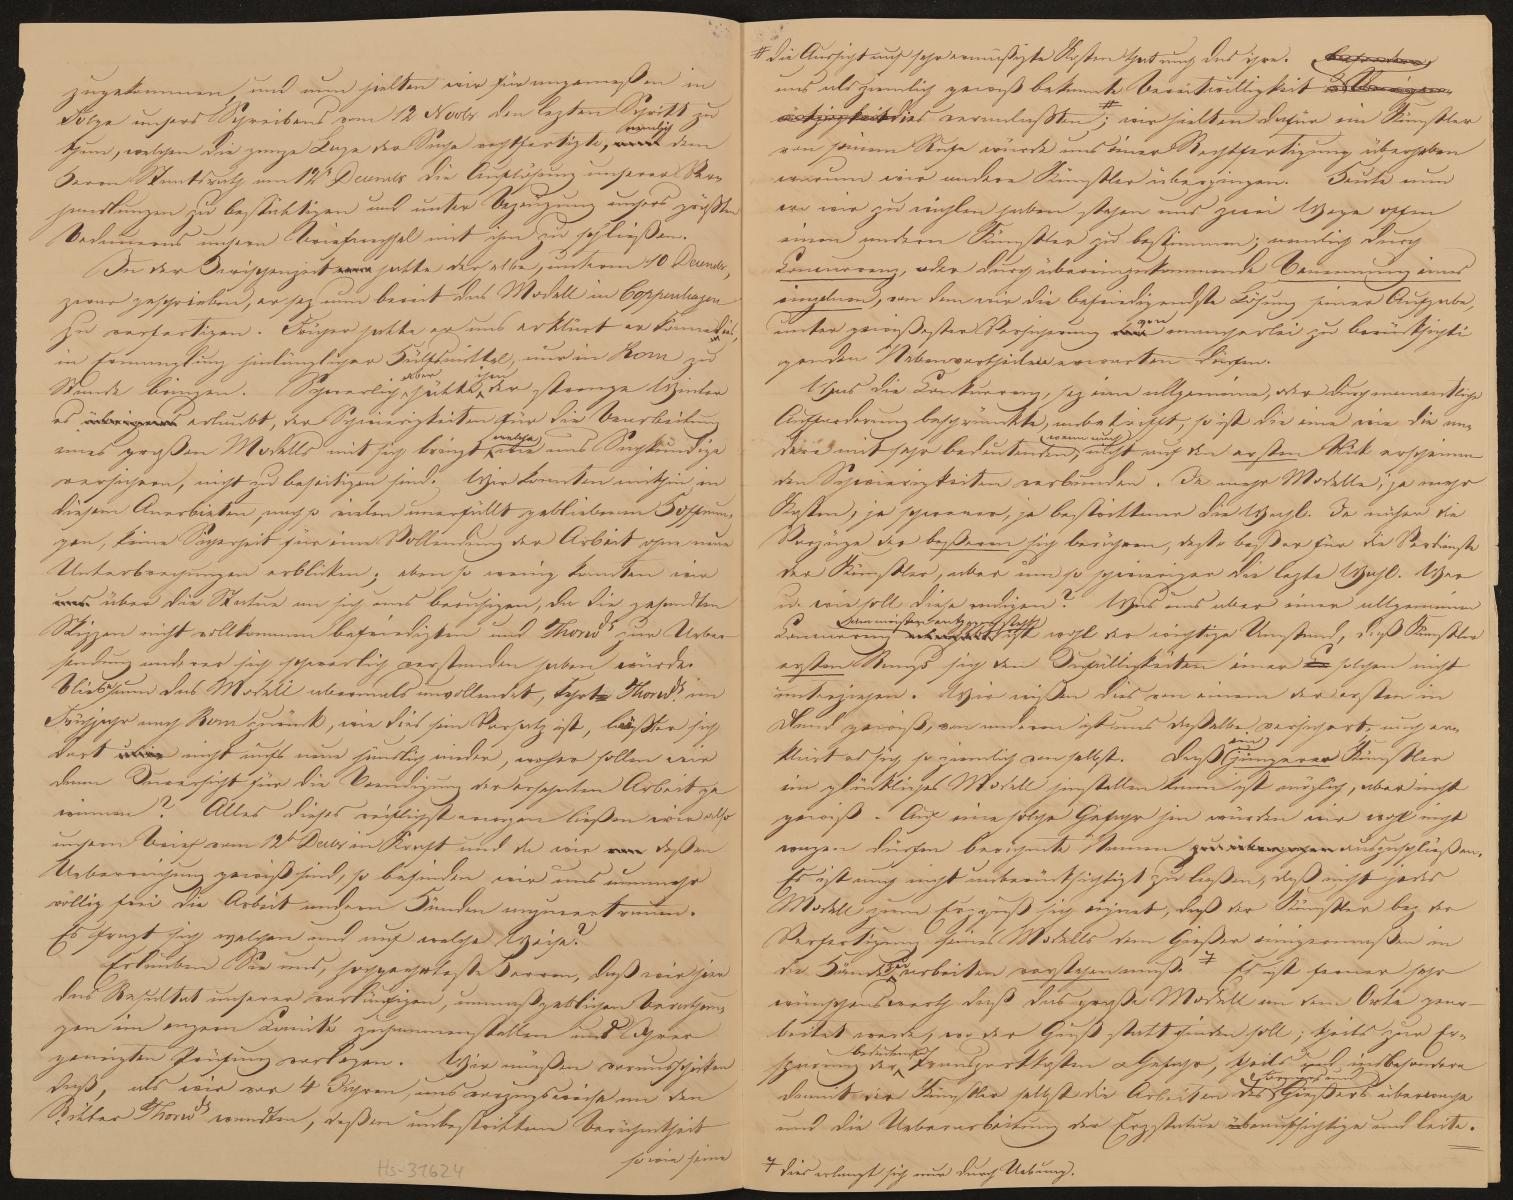 zugekommen, und nun hielten wir für angemessen in
Folge unsers Schreibens vom 12 Novbr den lezten Schritt zu
thun, welchen die ganze Lage der Sache rechtfertigte, nemlich dem
Herrn Staatsrath am 12t Decembr die Auflösung unserer Ver-
handlungen zu bestättigen und unter Bezeugung unsers größten
Bedauerns unsern Briefwechsel mit ihm zu schließen.
In der Zwischenzeit hatte derselbe, unterm 10 Decembr,
zwar geschrieben, er sey nun bereit das Modell in Coppenhagen
zu verfertigen. Früher hatte er uns erklärt er könne dies,
in Ermanglung hinlänglicher Hülfsmittel, nur in Rom zu
Stande bringen. Schwerlich aber hätte ihm der strenge Winter
es erlaubt, der Schwierigkeiten für die Bearbeitung
eines großen Modells mit sich bringt, welche uns Sachkundige
versichern, nicht zu beseitigen sind. Wir konnten mithin in
diesem Anerbieten, nach so vielen unerfüllt gebliebenen Hoffnun-
gen, keine Sicherheit für eine Vollendung der Arbeit ohne neue
Unterbrechungen erblicken; eben so wenig konnten wir
über die Statue an sich uns beruhigen, da die gesandten
Skizzen nicht vollkommen befriedigten und Thorwds zur Ueber-
sendung anderer sich schwerlich verstanden haben würde.
Blieb nun das Modell abermals unvollendet, kehrte Thorwds im
Frühjahr nach Rom zurück, wie dies sein Vorsatz ist, läßt er sich
dort nicht aufs neue häuslich nieder, woher sollen wir
dann Zuversicht für die Beendigung der ersehnten Arbeit ge-
winnen? Alles dieses reiflichst erwogen ließen wir also
unsern Brief vom 12t Decbr in Kraft und da wir dessen
Ueberreichung gewiß sind, so befinden wir uns nunmehr
völlig frei die Arbeit andern Händen anzuvertrauen.
Es fragt sich welchen und auf welche Weise?
Erlauben Sie uns, hochgeehrteste Herren, daß wir hier
das Resultat unserer vorläufigen, unmaßgeblichen Berathun-
gen im engern Comité zusammenstellen und Ihrer
geneigten Prüfung vorlegen. Wir müssen vorausschicken
daß, als wir vor 4 Jahren, uns vorzugsweise an den
Ritter Thorwds wandten, dessen unbestrittene Berühmtheit
so wie seine
Hs-31624
# die Aussicht auf sehr ermäßigte Kosten that auch das ihre.
uns als ziemlich gewiß bekannte Bereitwilligkeit
dies veranlaßten #; wir hielten dafür ein Künstler
von seinem Rufe würde uns einer Rechtfertigung überheben
warum wir andere Künstler übergingen. Heute nun
wo wir zu wählen haben stehen uns zwei Wege offen
einen andern Künstler zu bestimmen; nemlich durch
Concurrenz, oder durch übereingekommende Benennung eines
einzelnen, von dem wir die befriedigendste Lösung seiner Aufgabe,
unter gewissester Versicherung von mancherlei zu berücksichti
genden Nebenvortheilen erwarten dürfen.
Was die Conkurrenz, sey eine allgemeine, oder durch namentliche
Aufforderung beschränkte, anbetrifft, so ist die eine wie die an-
dere mit sehr bedeutenden, wenn auch nicht auf den ersten Blick erscheinen
den Schwierigkeiten verbunden. Je mehr Modelle, je mehr
Kosten, je schwerer, je bestrittener die Wahl. Je näher die
Vorzüge der besseren sich berühren, desto besser für die Verdienste
der Künstler, aber um so schwieriger die lezte Wahl. Wer
u. wie soll diese endigen? Was uns aber einer allgemeinen
Concurrenz am meisten entgegen steht ist wohl der wichtige Umstand, daß Künstler
ersten Rangs sich den Zufälligkeiten einer solchen nicht
unterziehen. Wir wissen dies von einem der ersten in
Deutschland gewiß, von andern ist uns dasselbe versichert, auch er-
klärt es sich so ziemlich von selbst. Daß ein jüngerer Künstler
ein glückliches Modell hinstellen kann ist möglich, aber nicht
gewiß. Auf eine solche Gefahr hin würden wir wohl nicht
wagen dürfen berühmte Namen auszuschließen.
Es ist auch nicht unberücksichtigt zu lassen, daß nicht jedes
Modell zum Erzguß sich eignet, daß der Künstler bey der
Verfertigung seines Modells dem Gießer einigermaßen in
die Hände zu arbeiten verstehen muß. ⁊ Es ist ferner sehr
wünschenswerth daß das große Modell an dem Orte gear-
beitet werde, wo der Guß statt finden soll; theils zur Er-
sparung der bedeutenden Transportkosten u Gefahr, theils und insbesondere
damit der Künstler selbst die Arbeiten des Gießers überwache
und die Ueberarbeitung der Erzstatue beaufsichtige und leite.
⁊ dies erlangt sich nur durch Uebung.